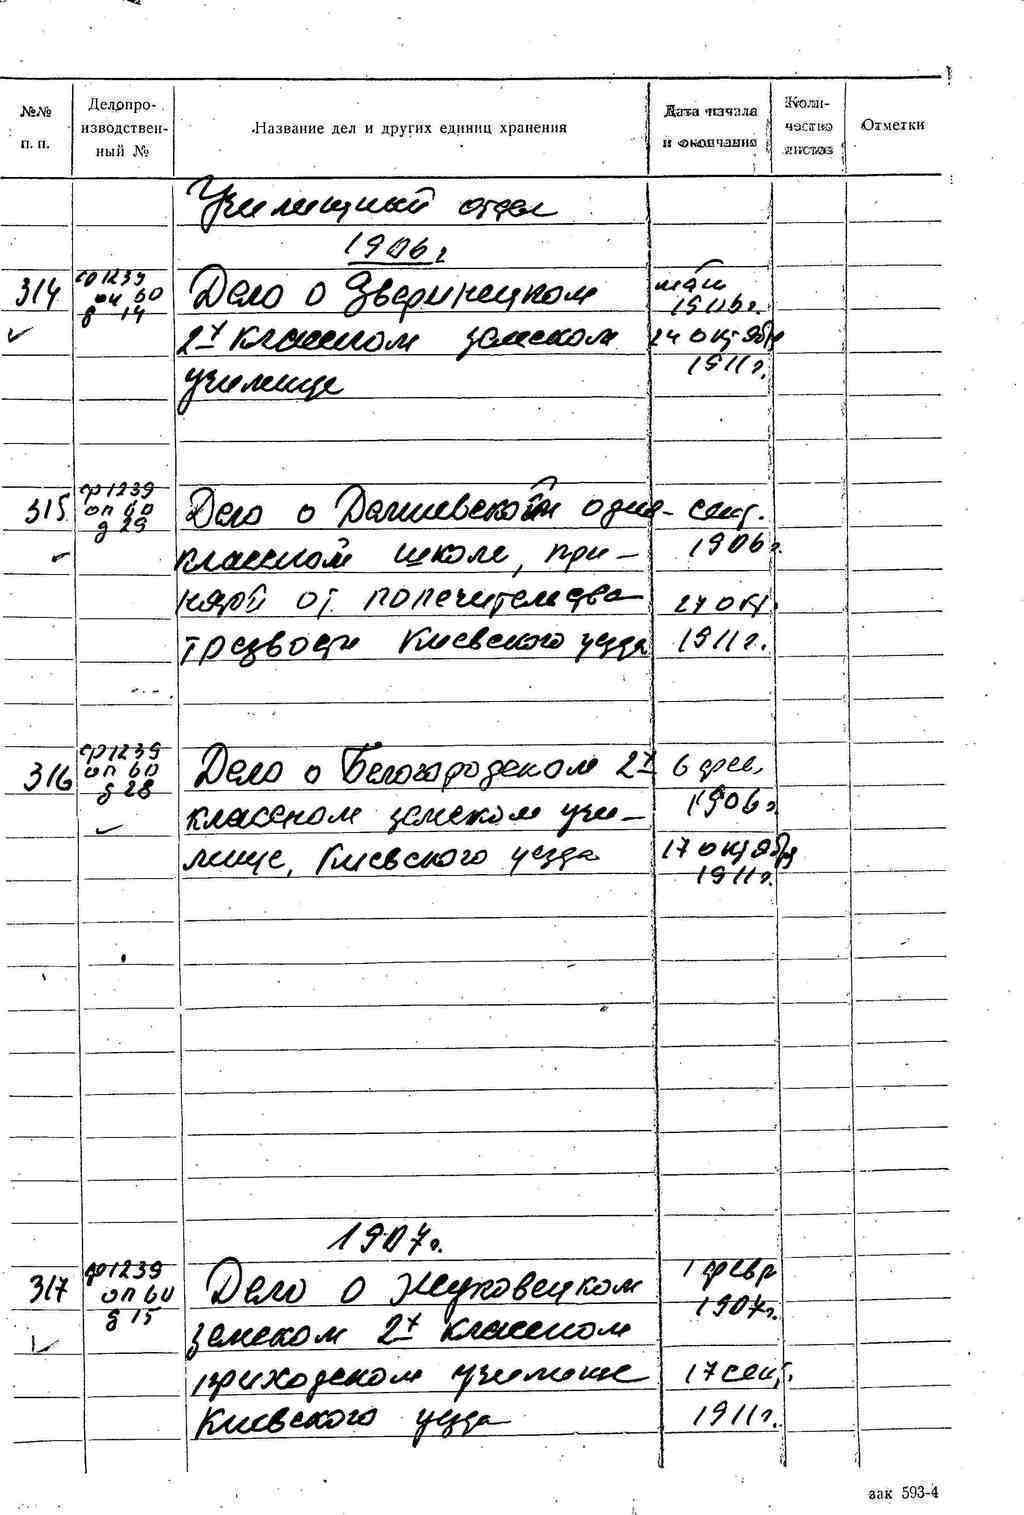 №№ п. п.
Делопроизводственный №
Название дел и других единиц хранения
Дата начала и окончания
Количество листов
Отметки
Училищный отдел
1906 г
314 ф 1239 оп 60 д 14
Дело о Зверинецком
2х классном земском
училище
май 1906 г.
24 октября 1911 г.
315 ф 1239 оп 60 д 29
Дело о одно-
классной школе, при-
нятой от попечительства
трезвости Киевского уезда
сент. 1906 г.
27 окт. 1911 г.
316 ф 1239 оп 60 д 28
Дело о Белогородском 2х
классном земском учи-
лище, Киевского уезда
6 1906 г.
17 октября 1911 г.
1907 г.
317 ф 1239 оп 60 д 15
Дело о Жуковецком
земском 2х классном
приходском училище
Киевского уезда
1 февр 1907 г.
17 сент. 1911 г.
зак 593-4